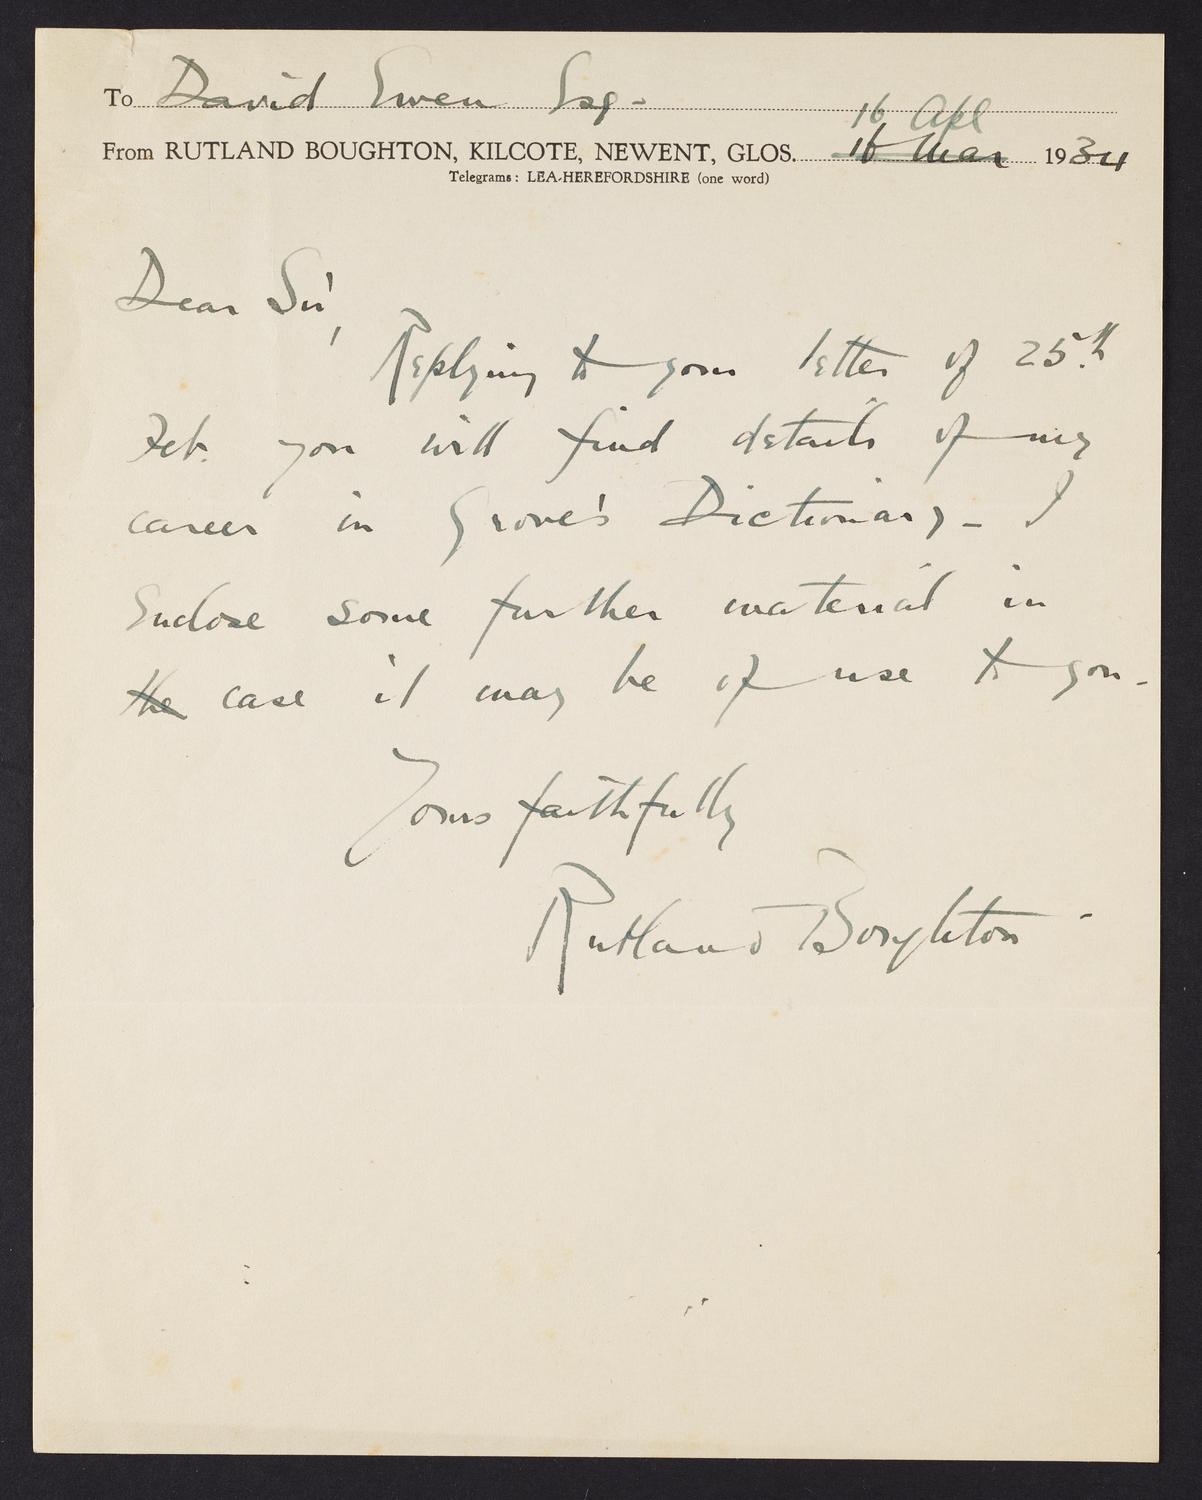 To David Ewen Esq.
16 Apl
From RUTLAND BOUGHTON, KILCOTE, NEWENT, GLOS. 16 Mar 1934
Telegrams: LEA-HEREFORDSHIRE (one word)
Dear Sir,
Replying to your letter of 25th
Feb. you will find details of my
career in Grove's Dictionary - I
Enclose some further material in
the case it may be of use to you.
Yours faithfully
Rutland Boughton